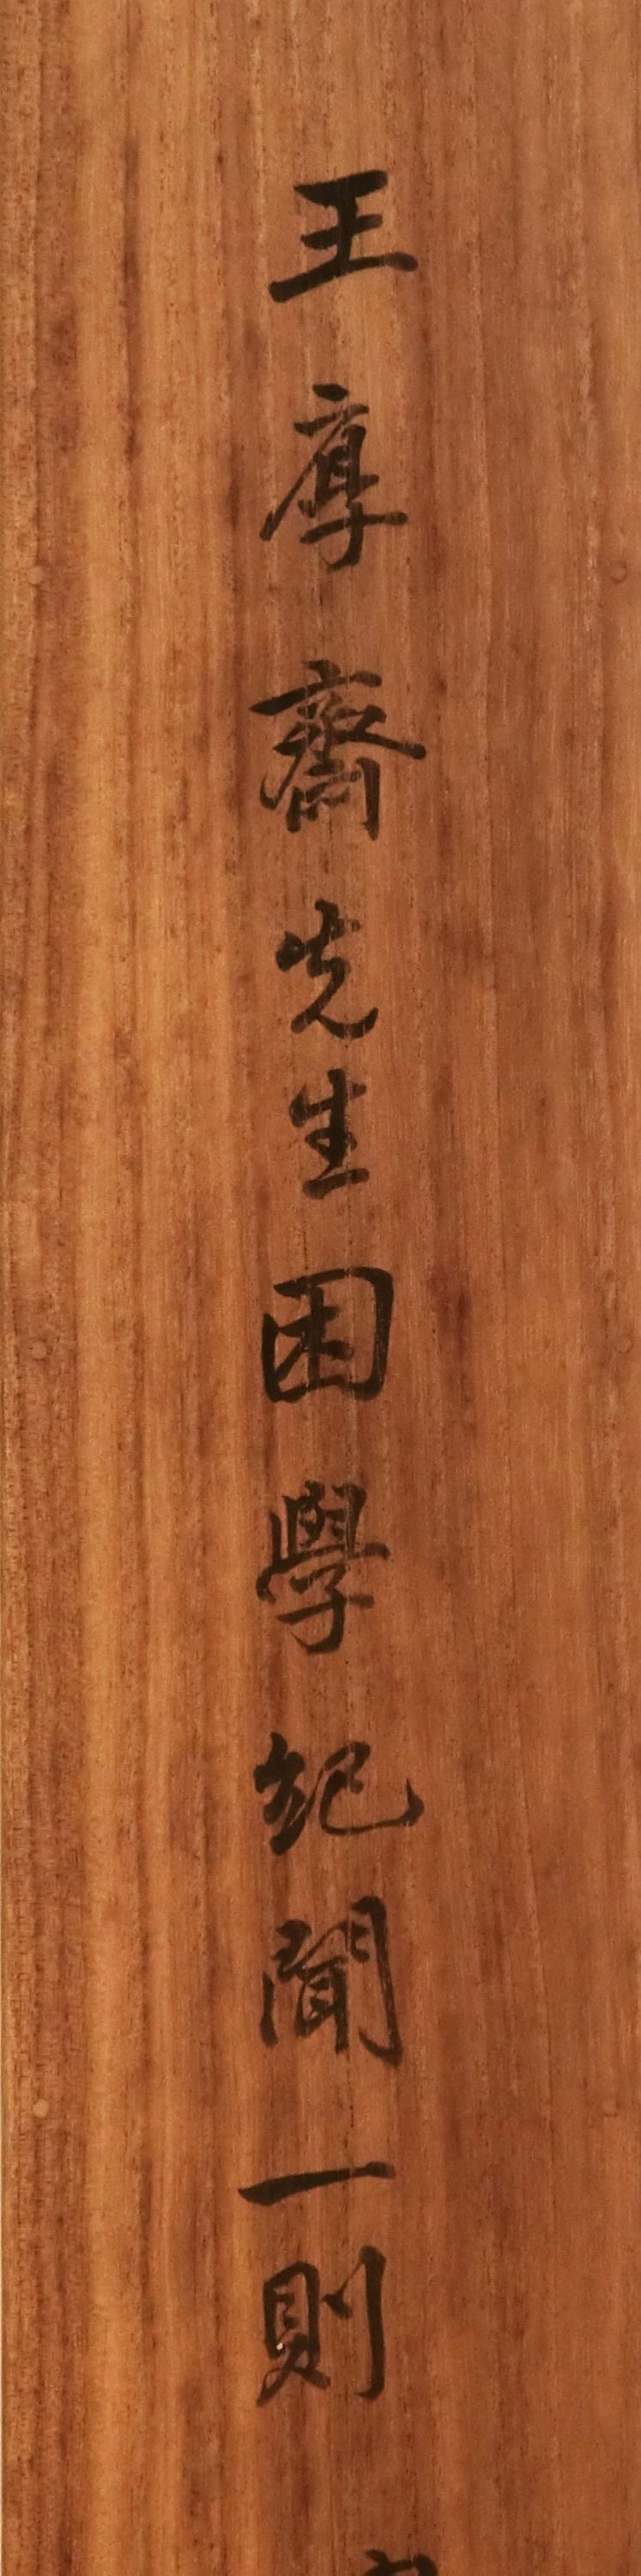 王厚齋先生困學紀聞一則